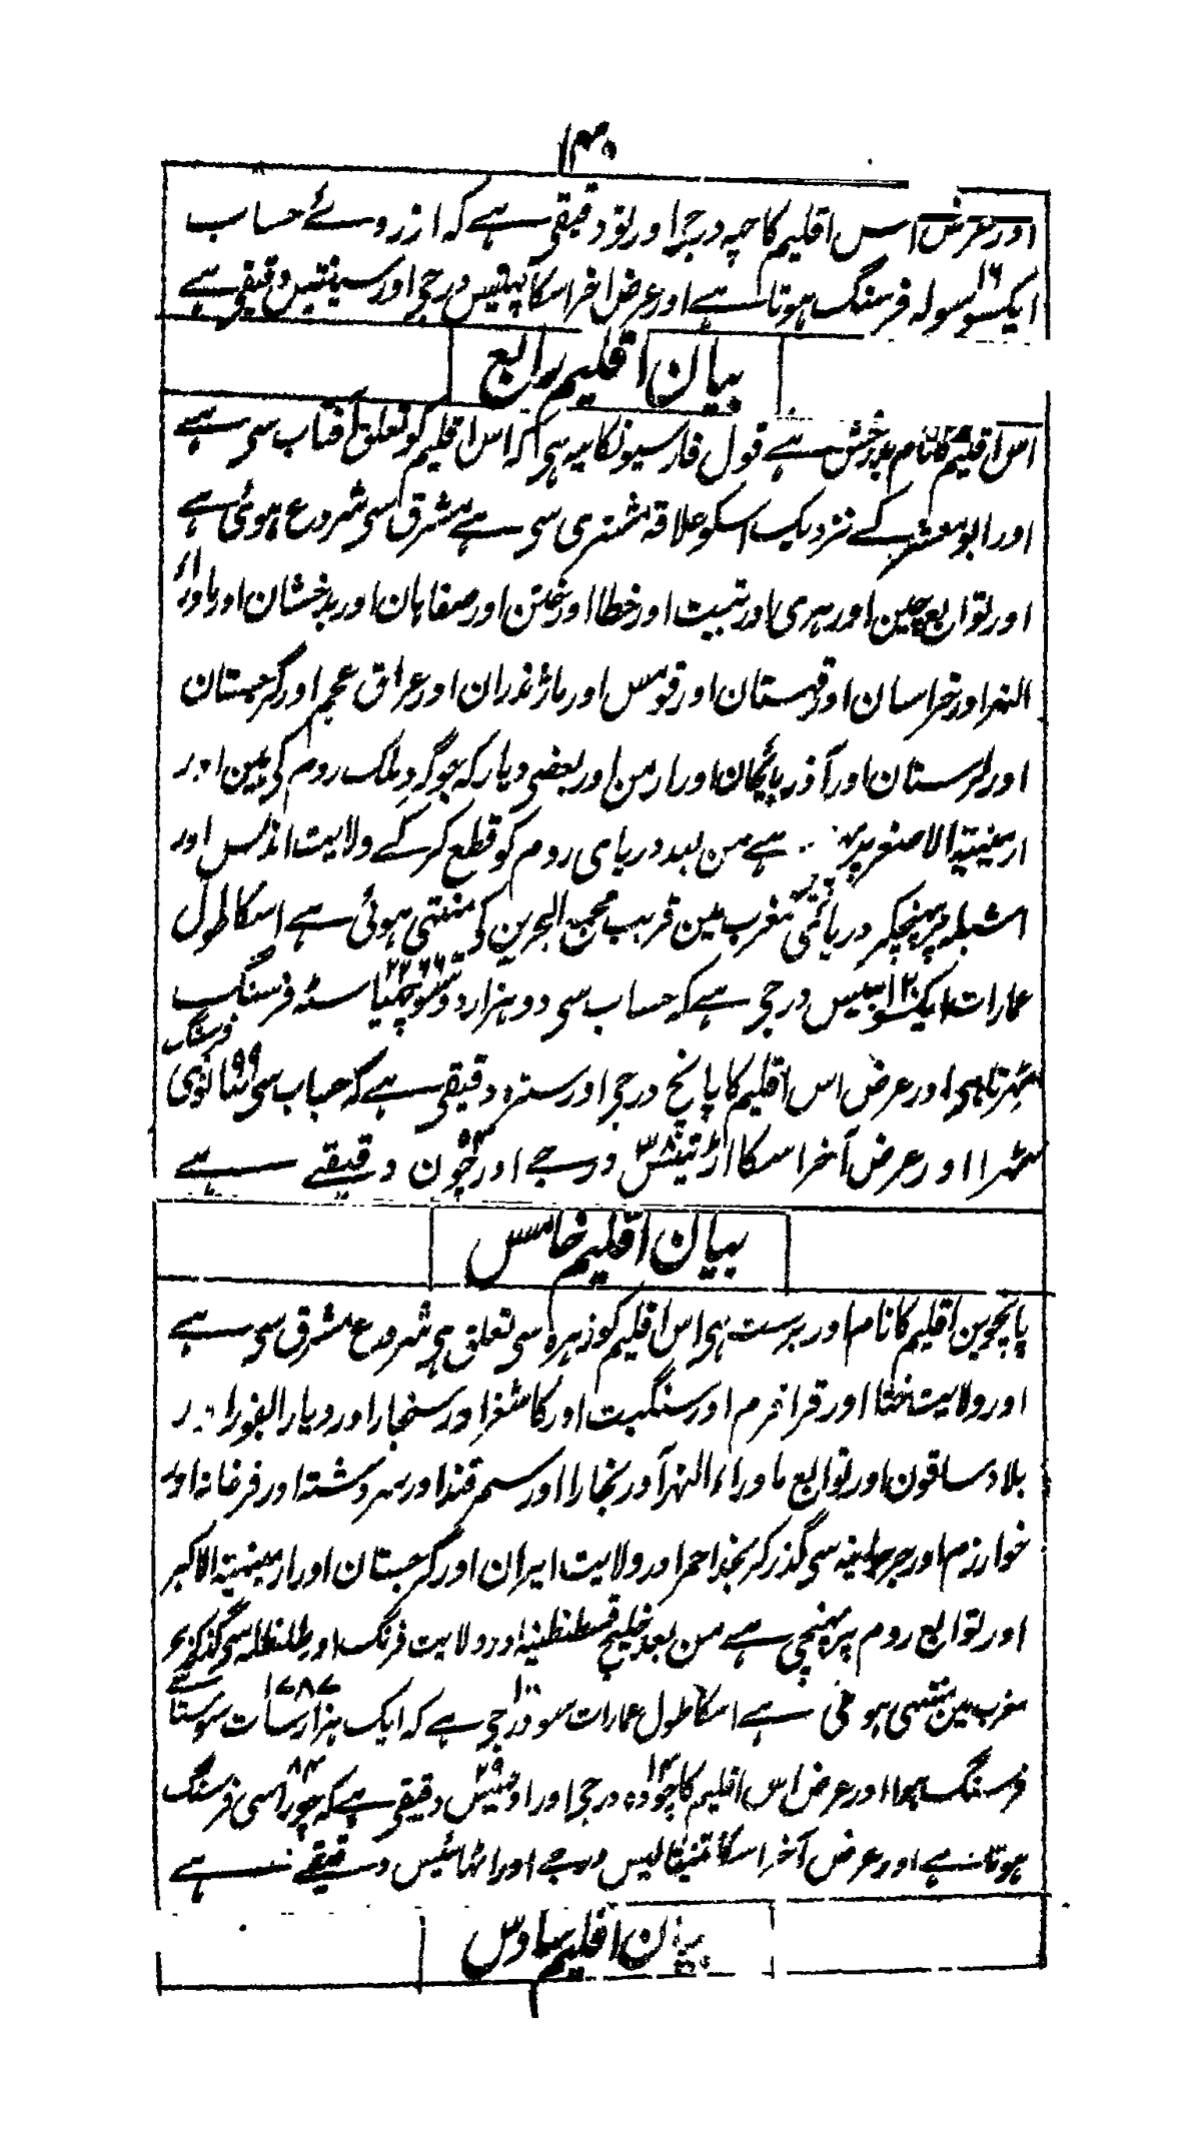 ۱۴۰
اور عرض اس اقلیم کا چہہ درجہ اور نو دقیقی ہے کہ از روئے حساب
۱۶
ایکسو سولہ فرسنگ ہوتا ہے اور عرض اخر اسکا تینتیس درجی اور سینتیس دقیقی ہے
بیان اقلیم رابع
اس اقلیم کا نام ہے قول فارسیونکا یہ ہی کہ اس اقلیم کو تعلق آفتاب سی ہے
اور ابو معشر کے نزدیک اسکو علاقہ مشتری سی ہے مشرق سی شروع ہوئی ہے
اور توابع چین اور ہری اور تبیت اور خطا اور ختن اور صفاہان اور بدخشان اور ماوراء
النہر اور خراسان اور قہستان اور قومس اور ماژندران اور عراق عجم اور گرجستان
اور لرستان اور آذربائیجان اور ارمن اور بعضی دیار کہ جو گرد ملک روم کی ہین اور
ارمینیۃ الاصغر پر ہے من بعد دریای روم کو قطع کر کے ولایت اندلس اور
اشبلہ پر پہنچکر دریائی مغرب مین قریب مجمع البحرین کی منتہی ہوئی ہے اسکا طول
۱۲۰ ۲۲۶۶
عمارات ایکسو بیس درجی ہے کہ حساب سی دو ہزار دو سو چھیاسٹہ فرسنگ
فرسنگ
۹۹
ٹہرتا ہی اور عرض اس اقلیم کا پانچ درجی اور سترہ دقیقی ہے کہ حساب سی ننانوی
۳۸ ۵۴
ٹہرا اور عرض آخر اسکا اڑتیس درجے اور چون دقیقے ہے
بیان اقلیم خامس
پانچوین اقلیم کا نام اور برست ہی اس اقلیم کو زہرہ سی تعلق ہی شروع مشرق سی ہے
اور ولایت ختا اور قراخرم اور سنگبت اور کاشغر اور سنجار اور دیار الفور اور
بلاد ساقون اور توابع ماوراء النہر اور بخارا اور سمرقند اور سروشتہ اور فرغانہ اور
خوارزم اور جرجانیہ سی گذر کر بحر احمر اور ولایت ایران اور گرجستان اور ارمینیۃ الاکبر
اور توابع روم پر پہنچی ہے من بعد خلیج قسطنطنیہ اور ولایت فرنگ اور طلیطلہ سی گذر کر بحر
۱۰۰ ۱۷۸۷
مغرب مین منتہی ہوئی ہے اسکا طول عمارات سو درجی ہے کہ ایک ہزار سات سو ستاسے
۱۴ ۲۹ ۸۴
فرسنگ ہوا اور عرض اس اقلیم کا چودہ درجی اور اونتیس دقیقی ہے کہ چوراسی فرسنگ
ہوتا ہے اور عرض آخر اسکا تینتالیس درجے اور اٹہائیس دقیقے ہے
بیان اقلیم سادس